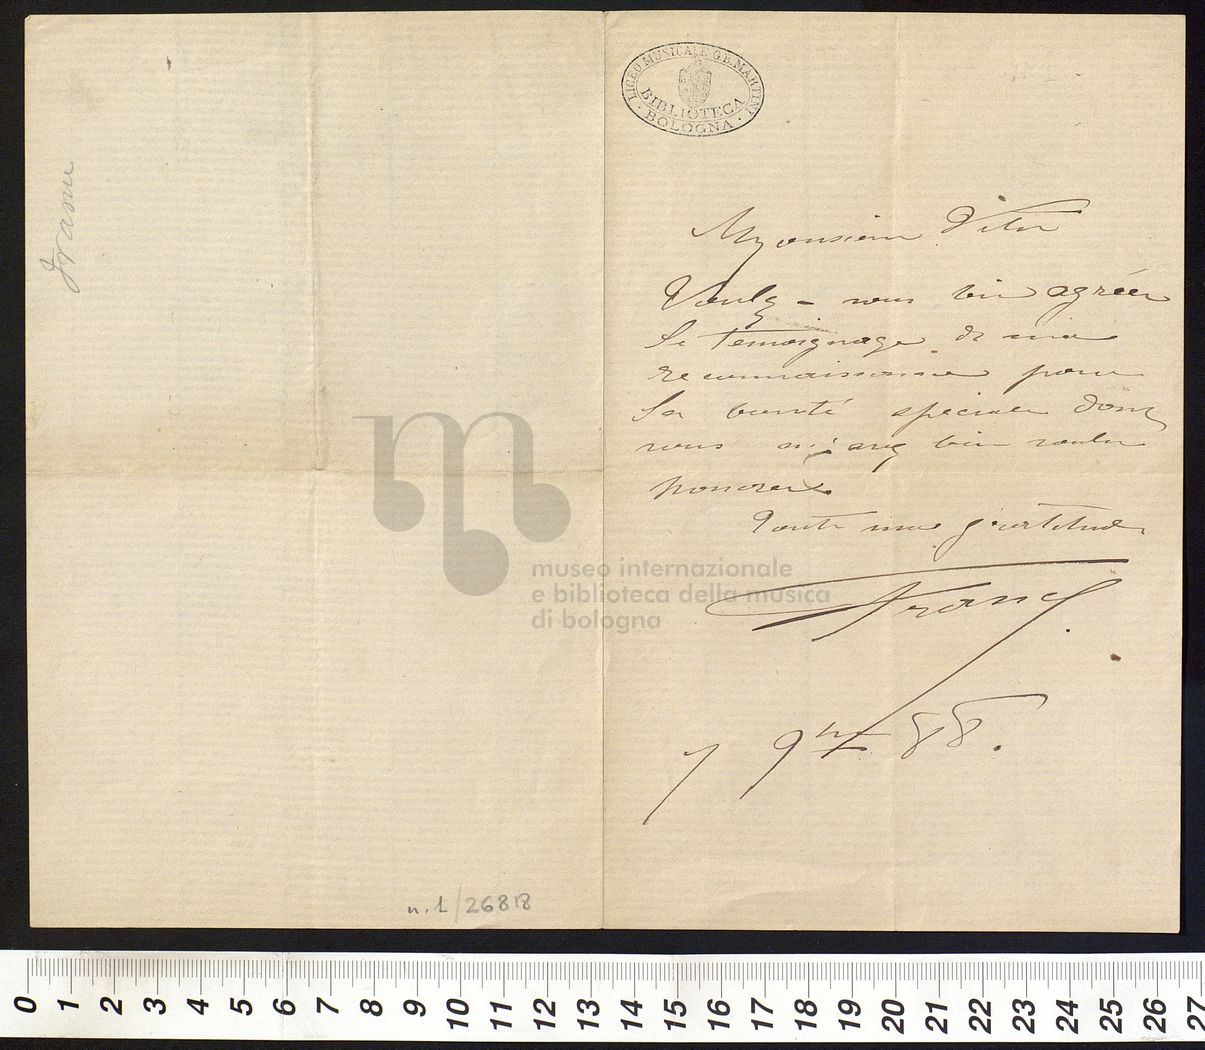 LICEO MUSICALE G.B. MARTINI
BIBLIOTECA
BOLOGNA
Monsieur
Voulez-vous bien agréer
le temoignage de ma
reconnaissance pour
la bonté speciale dont
vous m'avez bien voulu
honorer
Toute ma gratitude
7 9bre 88.
n.1/26818
museo internazionale
e biblioteca della musica
di bologna
0 1 2 3 4 5 6 7 8 9 10 11 12 13 14 15 16 17 18 19 20 21 22 23 24 25 26 27